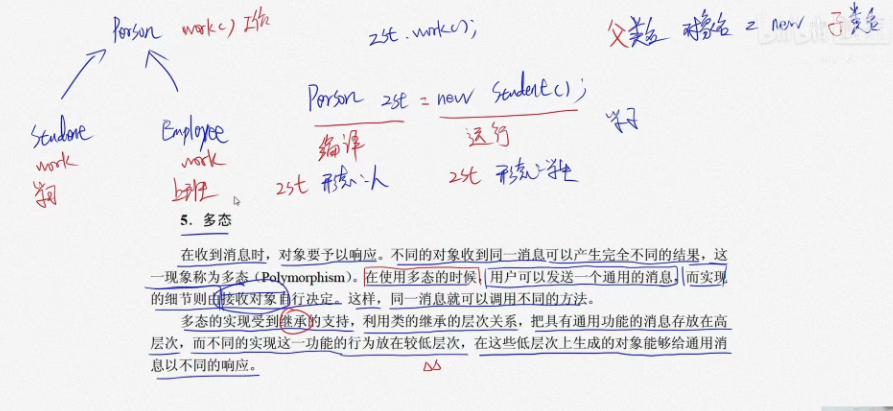 Person work() 工作 zst.work(); 父类名 对象名 = new 子类名
Person zst = new Student();
Student Employee 编译 运行 学习
work work
学习 上班 zst 形态:人 zst 形态:学生
5. 多态
在收到消息时，对象要予以响应。不同的对象收到同一消息可以产生完全不同的结果，这
一现象称为多态（Polymorphism）。在使用多态的时候，用户可以发送一个通用的消息，而实现
的细节则由接收对象自行决定。这样，同一消息就可以调用不同的方法。
多态的实现受到继承的支持，利用类的继承的层次关系，把具有通用功能的消息存放在高
层次，而不同的实现这一功能的行为放在较低层次，在这些低层次上生成的对象能够给通用消
息以不同的响应。